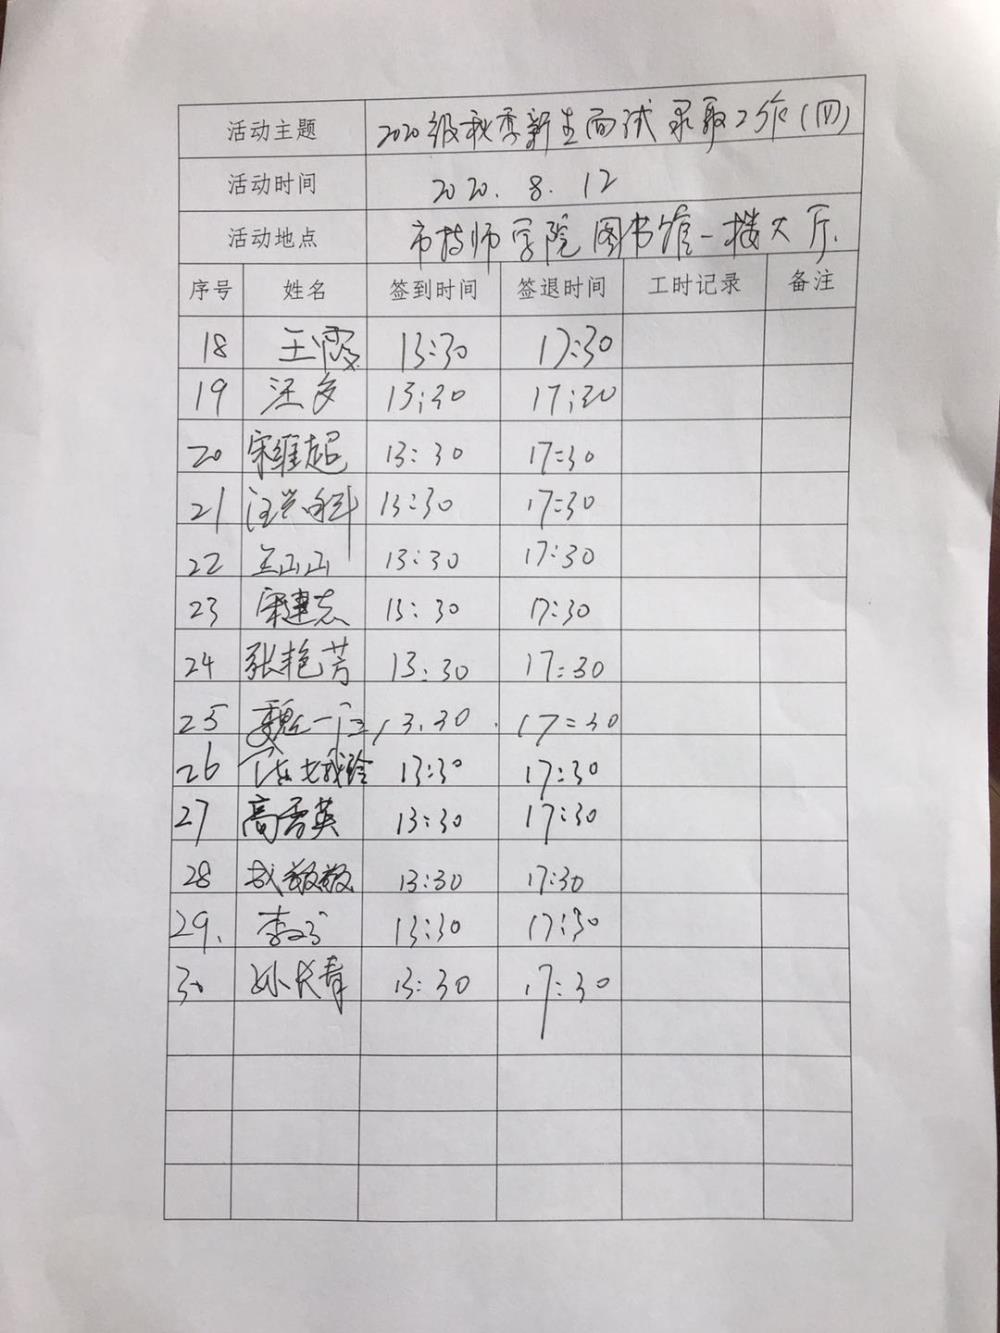 活动主题 2020级秋季新生面试录取工作(四)
活动时间 2020.8.12
活动地点 市技师学院图书馆一楼大厅.
序号 姓名 签到时间 签退时间 工时记录 备注
18 王霞 13:30 17:30
19 汪多 13:30 17:30
20 宋维超 13:30 17:30
21 13:30 17:30
22 王山山 13:30 17:30
23 宋建志 13:30 17:30
24 张艳芳 13:30 17:30
25 魏一 13.30. 17:30
26 13:30 17:30
27 高香英 13:30 17:30
28 武敬敬 13:30 17:30
29. 李 13:30 17:30
30 孙长青 13:30 17:30